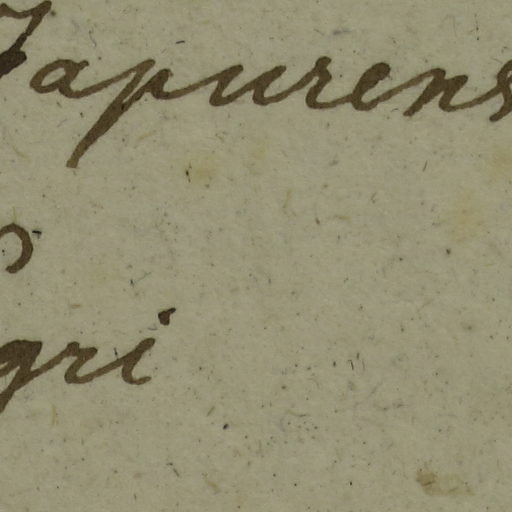 Japurens
gri